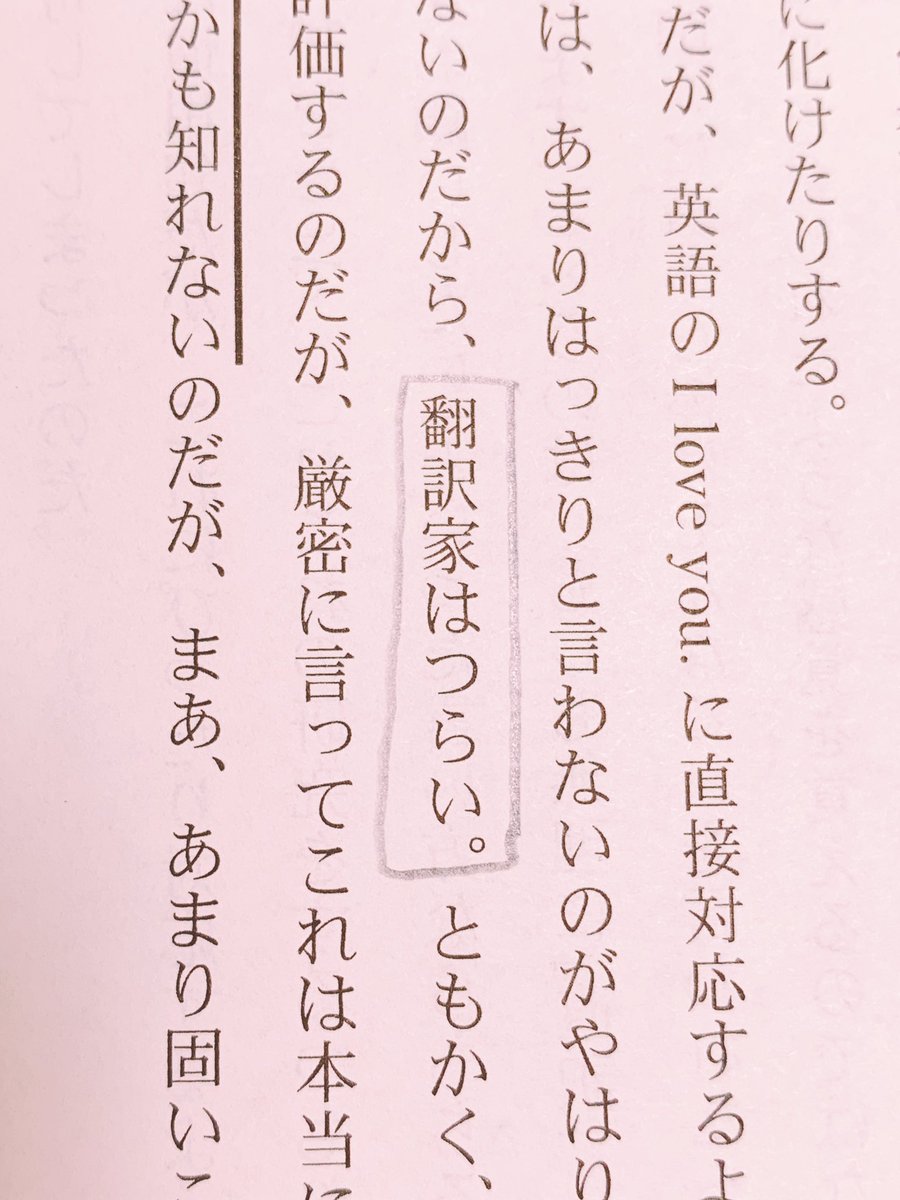 に化けたりする。
だが、英語の I love you. に直接対応するよ
は、あまりはっきりと言わないのがやはり
ないのだから、翻訳家はつらい。ともかく、
評価するのだが、厳密に言ってこれは本当に
かも知れないのだが、まあ、あまり固いこ